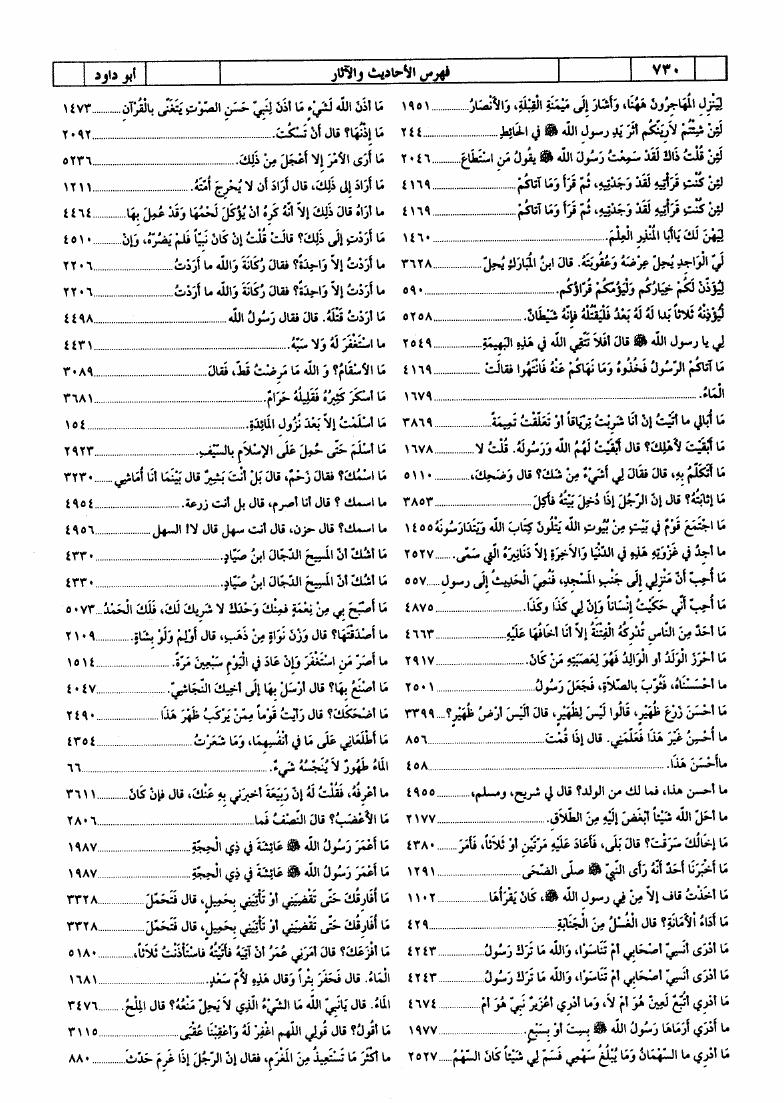 ٧٣٠
فهرس الأحاديث والآثار
أبو داود
لِيَنْزِلِ المُهَاجِرُونَ هَهُنَا، وَأَشَارَ إلَى مَيْمَنَةِ الْقِبْلَةِ، وَالأَنْصَارُ ........ ١٩٥١
لَئِنْ شِئْتُمْ لأُرِيَنَّكُم أَثَرَ يَدِ رسولِ الله ﷺ في الحَائِطِ ........ ٢٤٤
لَئِنْ قُلْتُ ذَاكَ لَقَدْ سَمِعْتُ رَسُولَ الله ﷺ يقُولُ مَنِ اسْتَطَاعَ ........ ٢٠٤٦
لَئِنْ كُنْتِ قَرَأْتِيهِ لَقَدْ وَجَدْتِيهِ، ثُمَّ قَرَأَ وَمَا آتَاكُمْ ........ ٤١٦٩
لَئِنْ كُنْتِ قَرَأْتِيهِ لَقَدْ وَجَدْتِيهِ، ثُمَّ قَرَأَ وَمَا آتَاكُمْ ........ ٤١٦٩
لِيَهْنَ لَكَ يَاأبَا المُنْذِرِ الْعِلْمَ. ........ ١٤٦٠
لَيُّ الْوَاجِدِ يُحِلُّ عِرْضَهُ وَعُقُوبَتَهُ. قالَ ابنُ المُبَارَكِ يُحِلُّ ........ ٣٦٢٨
لِيُؤَذِّنْ لَكُم خِيَارُكُم وَلْيَؤُمَّكُم قُرَّاؤُكُم. ........ ٥٩٠
لِيُؤْذِنْهُ ثَلاَثاً بَدا لَهُ بَعْدُ فَلْيَقْتُلْهُ فَإنَّهُ شَيْطَانٌ. ........ ٥٢٥٨
لِي يا رسولَ الله ﷺ قالَ أفَلاَ تَتَّقِي الله في هَذِهِ الْبَهِيمَةِ ........ ٢٥٤٩
مَا آتَاكُم الرَّسُولُ فَخُذُوهُ وَمَا نَهَاكُمْ عَنْهُ فَانْتَهُوا فقالَتْ ........ ٤١٦٩
المَاءُ. ........ ١٦٧٩
مَا أُبَالِي ما أتَيْتُ إنْ أنَا شَرِبْتُ تِرْيَاقاً أوْ تَعَلَّقْتُ تَمِيمَةً ........ ٣٨٦٩
مَا أَبْقَيْتَ لأَهْلِكَ؟ قال أَبْقَيْتُ لَهُمُ الله وَرَسُولَهُ. قُلْتُ لا ........ ١٦٧٨
مَا أتَكَلَّمُ بِهِ، قال فقالَ لِي أشَيْءٌ مِنْ شَكّ؟ قال وَضَحِكَ، ........ ٥١١٠
مَا إثَابَتُهُ؟ قال إنَّ الرَّجُلَ إذَا دُخِلَ بَيْتُهُ فأُكِلَ ........ ٣٨٥٣
مَا اجْتَمَعَ قَوْمٌ في بَيْتٍ مِنْ بُيُوتِ الله يَتْلُونَ كِتَابَ الله وَيَتَدَارَسُونَهُ ١٤٥٥
ما أجِدُ في غَزْوَتِهِ هَذِهِ في الدُّنْيَا وَالآخِرَةِ إلاَّ دَنَانِيرَهُ الَّتِي سَمَّى. ........ ٢٥٢٧
مَا أُحِبُّ أنَّ مَنْزِلِي إلَى جَنْبِ المَسْجِدِ، فَنُمِيَ الْحَدِيثُ إلَى رسولِ ........ ٥٥٧
مَا أُحِبُّ أنِّي حَكَيْتُ إنْسَاناً وَإنَّ لِي كَذَا وكَذَا. ........ ٤٨٧٥
مَا أحَدٌ مِنَ النَّاسِ تُدْرِكُهُ الْفِتْنَةُ إلاَّ أنَا أخَافُهَا عَلَيْهِ ........ ٤٦٦٣
مَا أحْرَزَ الْوَلَدُ أوِ الْوَالِدُ فَهُوَ لِعَصَبَتِهِ مَنْ كَانَ. ........ ٢٩١٧
ما أحْسَسْنَاهُ، فَثُوِّبَ بالصَّلاَةِ، فَجَعَلَ رَسُولُ ........ ٢٥٠١
مَا أحْسَنَ زَرْعَ ظُهَيْرٍ، قالُوا لَيْسَ لِظُهَيْرٍ، قالَ ألَيْسَ أرْضُ ظُهَيْرٍ؟ ... ٣٣٩٩
مَا أُحْسِنُ غَيْرَ هَذَا فَعَلِّمْنِي. قال إذَا قُمْتَ ........ ٨٥٦
مَاأَحْسَنَ هَذَا. ........ ٤٥٨
ما أحسن هذا، فما لك من الولد؟ قال لي شريح، ومسلم، ........ ٤٩٥٥
ما أحَلَّ الله شَيْئاً أبْغَضَ إلَيْهِ مِنَ الطَّلاَقِ. ........ ٢١٧٧
مَا إخَالُكَ سَرَقْتَ؟ قالَ بَلَى، فَأَعَادَ عَلَيْهِ مَرَّتَيْنِ أوْ ثَلاَثاً، فَأَمَرَ ........ ٤٣٨٠
مَا أخْبَرَنَا أحَدٌ أنَّهُ رَأَى النَّبيَّ ﷺ صلَّى الضُّحَى ........ ١٢٩١
ما أخَذْتُ قاف إلاَّ مِنْ فِي رسولِ الله ﷺ، كَانَ يَقْرَأُهَا ........ ١١٠٢
مَا أدَاءُ الأمَانَةِ؟ قال الْغُسْلُ مِنَ الْجَنَابَةِ ........ ٤٢٩
مَا أدْرِي أنَسِيَ أصْحَابِي أمْ تَنَاسَوْا، وَالله مَا تَرَكَ رَسُولُ ........ ٤٢٤٣
مَا أدْرِي أنَسِيَ أصْحَابِي أمْ تَنَاسَوْا، وَالله مَا تَرَكَ رَسُولُ ........ ٤٢٤٣
مَا أدْرِي أتُبَّعٌ لَعِينٌ هُوَ أمْ لاَ، وَما أدْرِي أعُزَيْرٌ نَبيٌّ هُوَ أمْ ........ ٤٦٧٤
ما أدْرِي أرَمَاهَا رَسُولُ الله ﷺ بِسِتّ أوْ بِسَبْعٍ. ........ ١٩٧٧
مَا أدْرِي ما السُّهْمَانُ وَمَا يُبْلُغُ سَهْمِي فَسَمِّ لِي شَيْئاً كَانَ السَّهْمُ ........ ٢٥٢٧
مَا أذِنَ الله لِشَيْءٍ مَا أذِنَ لِنَبِيٍّ حَسَنِ الصَّوْتِ يَتَغَنَّى بالْقُرْآنِ ........ ١٤٧٣
مَا إذْنُهَا؟ قال أنْ تَسْكُتَ. ........ ٢٠٩٢
مَا أَرَى الأمْرَ إلاَّ أعْجَلَ مِنْ ذَلِكَ. ........ ٥٢٣٦
مَا أرَادَ إلَى ذَلِكَ، قال أرَادَ أن لا يُحْرِجَ أُمَّتَهُ. ........ ١٢١١
ما أرَاهُ قالَ ذَلِكَ إلاَّ أنَّهُ كَرِهَ أنْ يُؤْكَلَ لَحْمُهَا وَقَدْ عُمِلَ بِهَا ........ ٤٤٦٤
مَا أرَدْتِ إلَى ذَلِكَ؟ قالَتْ قُلْتُ إنْ كَانَ نَبِيّاً فَلَمْ يَضُرَّهُ، وَإنْ ........ ٤٥١٠
ما أرَدْتَ إلاَّ وَاحِدَةً؟ فقالَ رُكَانَةُ وَالله ما أرَدْتُ ........ ٢٢٠٦
ما أرَدْتَ إلاَّ وَاحِدَةً؟ فقالَ رُكَانَةُ وَالله ما أرَدْتُ ........ ٢٢٠٦
مَا أرَدْتُ قَتْلَهُ. قالَ فقال رَسُولُ الله ........ ٤٤٩٨
ما اسْتَغْفَرَ لَهُ وَلا سَبَّهُ. ........ ٤٤٣١
مَا الأسْقَامُ؟ وَ الله مَا مَرِضْتُ قَطُّ، فَقالَ ........ ٣٠٨٩
مَا أسْكَرَ كَثِيرُهُ فَقَلِيلُهُ حَرَامٌ. ........ ٣٦٨١
مَا أسْلَمْتُ إلاَّ بَعْدَ نُزُولِ المَائِدَةِ. ........ ١٥٤
مَا أسْلَمَ حَتَّى حُمِلَ عَلَى الإسْلاَمِ بالسَّيْفِ. ........ ٢٩٢٣
مَا اسْمُكَ؟ فقالَ زَحْمٌ، قالَ بَلْ أنْتَ بَشِيرٌ قال بَيْنَمَا أنَا أُمَاشِي ........ ٣٢٣٠
ما اسمك ؟ قال أنا أصرم، قال بل أنت زرعة. ........ ٤٩٥٤
ما اسمك؟ قال حزن، قال أنت سهل قال لا! السهل ........ ٤٩٥٦
مَا أشُكُّ أنَّ المَسِيحَ الدَّجَّالَ ابنُ صَيَّادٍ. ........ ٤٣٣٠
مَا أشُكُّ أنَّ المَسِيحَ الدَّجَّالَ ابنُ صَيَّادٍ. ........ ٤٣٣٠
مَا أصْبَحَ بِي مِنْ نِعْمَةٍ فَمِنْكَ وَحْدَكَ لا شَرِيكَ لَكَ، فَلَكَ الْحَمْدُ ........ ٥٠٧٣
ما أصْدَقْتَهَا؟ قال وَزْنَ نَوَاةٍ مِنْ ذَهَبٍ، قال أوْلِمْ وَلَوْ بِشَاةٍ. ........ ٢١٠٩
ما أصَرَّ مَنِ اسْتَغْفَرَ وَإنْ عَادَ في الْيَوْمِ سَبْعِينَ مَرَّةً. ........ ١٥١٤
مَا أصْنَعُ بِهَا؟ قال أرْسِلْ بِهَا إلَى أخِيكَ النَّجَاشِيِّ. ........ ٤٠٤٧
ما أضْحَكَكَ؟ قال رَأَيْتُ قَوْماً مِمَّنْ يَرْكَبُ ظَهْرَ هَذَا ........ ٢٤٩٠
مَا أطْلَعَانِي عَلَى مَا في أنْفُسِهِمَا، وَمَا شَعَرْتُ ........ ٤٣٥٤
المَاءُ طَهُورٌ لا يُنَجِّسُهُ شَيءٌ. ........ ٦٦
ما أعْرِفُهُ، فَقُلْتُ لَهُ إنَّ رَبِيعَةَ أخبرني بِهِ عَنْكَ، قال فإن كَانَ ........ ٣٦١١
مَا الأَعْضَبُ؟ قالَ النِّصْفُ فَما ........ ٢٨٠٦
مَا أعْمَرَ رَسُولُ الله ﷺ عَائِشَةَ في ذِي الْحِجَّةِ ........ ١٩٨٧
مَا أعْمَرَ رَسُولُ الله ﷺ عَائِشَةَ في ذِي الْحِجَّةِ ........ ١٩٨٧
مَا أُفَارِقُكَ حَتَّى تَقْضِيَنِي أوْ تَأْتِيَنِي بِحَمِيلٍ، قال فَتَحَمَّلَ ........ ٣٣٢٨
مَا أُفَارِقُكَ حَتَّى تَقْضِيَنِي أوْ تَأْتِيَنِي بِحَمِيلٍ، قال فَتَحَمَّلَ ........ ٣٣٢٨
مَا أفْزَعَكَ؟ قال أمَرَنِي عُمَرُ أنْ آتِيَهُ فأتَيْتُهُ فاسْتَأْذَنْتُ ثَلاَثاً، ........ ٥١٨٠
المَاءُ. قال فَحَفَرَ بِئْراً وَقال هَذِهِ لأُمِّ سَعْدٍ. ........ ١٦٨١
المَاءُ. قال يَانَبِيَّ الله مَا الشَّيْءُ الَّذِي لا يَحِلُّ مَنْعُهُ؟ قال المِلْحُ. ........ ٣٤٧٦
مَا أقُولُ؟ قال قُولِي اللَّهمَّ اغْفِرْ لَهُ وَأعْقِبْنَا عُقْبَى ........ ٣١١٥
ما أكْثَرَ مَا تَسْتَعِيذُ مِنَ المَغْرَمِ، فقال إنَّ الرَّجُلَ إذَا غَرِمَ حَدَّثَ ........ ٨٨٠